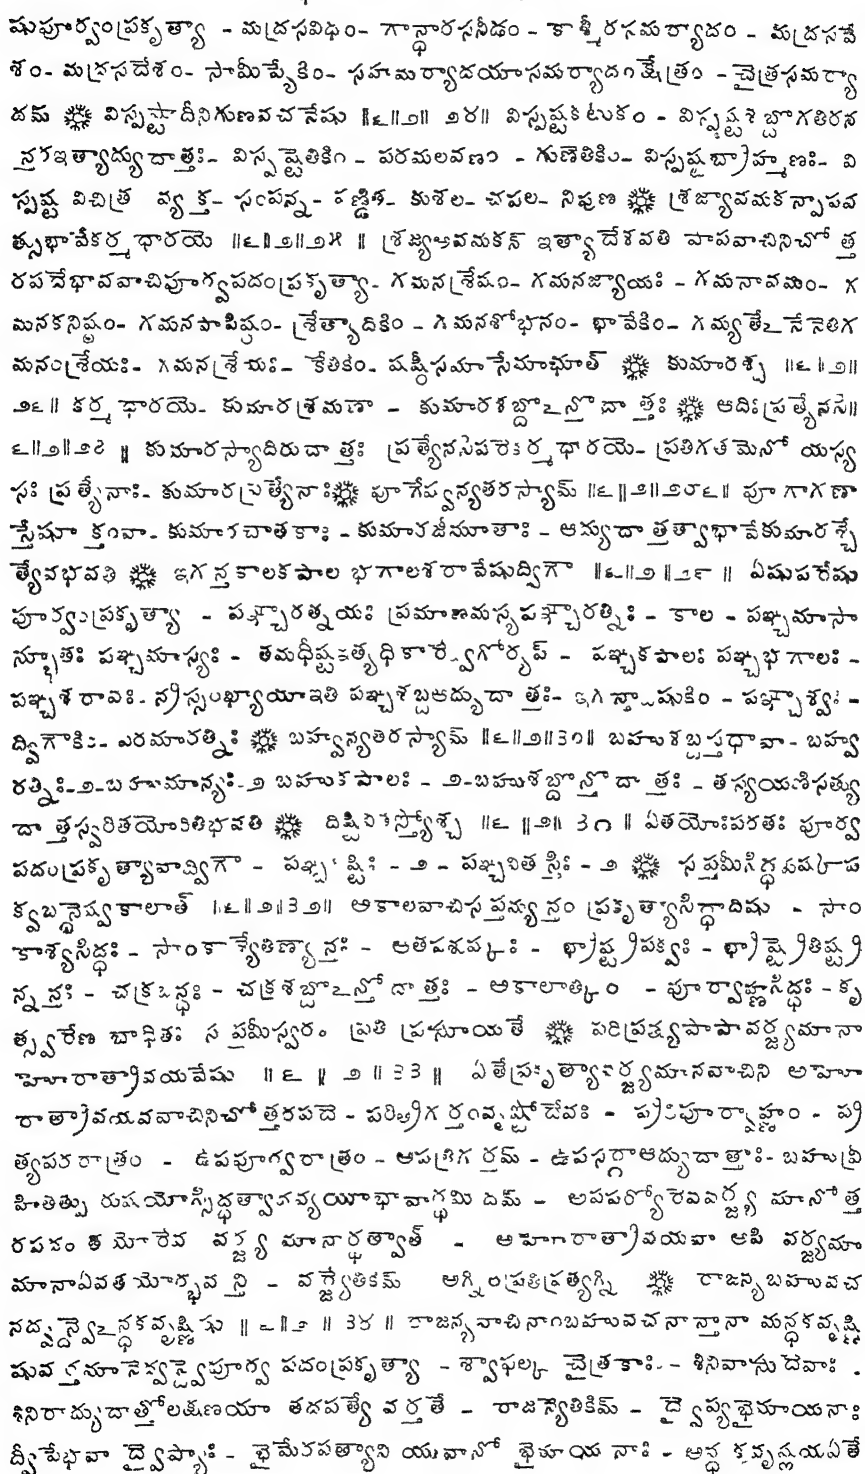 షుపూర్వంప్రకృత్యా - మద్రసవిధం- గాన్ధారసనీడం- కాశ్మీరసమర్యాదం - మద్రసవే
శం- మద్రసదేశం- సామీప్యేకిం- సహమర్యాదయాసమర్యాదంక్షేత్రం - చైత్రసమర్యా
దమ్ ❋ విస్పష్టాదీనిగుణవచనేషు ‖౬‖౨‖ ౨౪‖ విస్పష్టకటుకం - విస్పష్టశబ్దోగతిరన
న్తరఇత్యాద్యుదాత్తః- విస్పష్టెతికిం - పరమలవణం - గుణేతికిం- విస్పష్టబ్రాహ్మణః- వి
స్పష్ట విచిత్ర వ్యక్త- సంపన్న- పణ్డిత- కుశల- చపల- నిపుణ ❋ శ్రజ్యావమకన్పాపవ
త్సుభావేకర్మధారయె ‖౬‖౨‖౨౫ ‖ శ్రజ్యఅవమకన్ ఇత్యాదేశవతి పాపవాచినిచోత్త
రపదేభావవాచిపూర్వపదంప్రకృత్యా- గమనశ్రేష్ఠం- గమనజ్యాయః - గమనావమం- గ
మనకనిష్ఠం- గమనపాపిష్ఠం- శ్రేత్యాదికిం - గమనశోభనం- భావేకిం- గమ్యతేఽనేనెతిగ
మనంశ్రేయః- గమనశ్రేయః- కేతికిం- షష్ఠీసమాసేమాభూత్ ❋ కుమారశ్చ ‖౬‖౨‖
౨౬‖ కర్మధారయె- కుమారశ్రమణా - కుమారశబ్దోఽన్తోదాత్తః ❋ ఆదిఃప్రత్యేనసి‖
౬‖౨‖౨౭ ‖ కుమారస్యాదిరుదాత్తః ప్రత్యేనసిపరేకర్మధారయె- ప్రతిగతమెనో యస్య
సః ప్రత్యేనాః- కుమారప్రత్యేనాః❋ పూగేష్వన్యతరస్యామ్ ‖౬‖౨‖౨౮‖ పూగాగణా
స్తేషూక్తంవా- కుమారచాతకాః - కుమారజీమూతాః - ఆద్యుదాత్తత్వాభావేకుమారశ్చే
త్యేవభవతి ❋ ఇగన్తకాలకపాల భగాలశరావేషుద్విగౌ ‖౬‖౨‖౨౯ ‖ ఏషుపరేషు
పూర్వంప్రకృత్యా - పఞ్చారత్నయః ప్రమాణమస్యపఞ్చారత్నిః - కాల - పఞ్చమాసా
న్భూతః పఞ్చమాస్యః - తమధీష్టఇత్యధికారేద్విగోర్యప్ - పఞ్చకపాలః పఞ్చభగాలః -
పఞ్చశరావః- న్రిస్సంఖ్యాయాఇతి పఞ్చశబ్దఆద్యుదాత్తః- ఇగన్తాదిషుకిం - పఞ్చాశ్వః -
ద్విగౌకిం- పరమారత్నిః ❋ బహ్వన్యతరస్యామ్ ‖౬‖౨‖౩౦‖ బహుశబ్దస్తథావా- బహ్వ
రత్నిః-౨-బహుమాస్యః-౨ బహుకపాలః - ౨-బహుశబ్దోన్తోదాత్తః - తస్యయణిసత్యు
దాత్తస్వరితయోరితిభవతి ❋ దిష్టివితస్త్యోశ్చ ‖౬ ‖౨‖ ౩౧ ‖ ఏతయోఃపరతః పూర్వ
పదంప్రకృత్యావాద్విగౌ - పఞ్చదిష్టిః - ౨ - పఞ్చవితస్తిః - ౨ ❋ సప్తమీసిద్ధశుష్కప
క్వబన్ధేష్వకాలాత్ ‖౬‖౨‖౩౨‖ అకాలవాచిసప్తమ్యన్తం ప్రకృత్యాసిద్ధాదిషు - సాం
కాశ్యసిద్ధః - సాంకాశ్యేతిణ్యాన్తః - ఆతపశుష్కః - భ్రాష్ట్రపక్వః - భ్రాష్ట్రేతిష్ట్ర
న్నన్తః - చక్రబన్ధః - చక్రశబ్దోఽన్తోదాత్తః - అకాలాత్కిం - పూర్వాహ్ణసిద్ధః - కృ
త్స్వరేణ బాధితః సప్తమీస్వరం ప్రతి ప్రసూయతే ❋ పరిప్రత్యుపాపావర్జ్యమానా
హోరాత్రావయవేషు ‖౬ ‖ ౨ ‖ ౩౩ ‖ ఏతేప్రకృత్యావర్జ్యమానవాచిని అహో
రాత్రావయవవాచినిచోత్తరపదె - పరిత్రిగర్తంవృష్టోదేవః - ప్రతిపూర్వాహ్ణం - ప్ర
త్యపరరాత్రం - ఉపపూర్వరాత్రం - అపత్రిగర్తమ్ - ఉపసర్గాఆద్యుదాత్తాః- బహువ్రీ
హితత్పురుషయోస్సిద్ధత్వాదవ్యయీభావార్థమిదమ్ - అపపర్యోరేవవర్జ్యమానోత్త
రపదం తయోరేవ వర్జ్యమానార్థత్వాత్ - అహోరాత్రావయవా అపి వర్జ్యమా
మానాఏవతయోర్భవన్తి - వర్జ్యేతికిమ్ అగ్నింప్రతిప్రత్యగ్ని ❋ రాజన్యబహువచ
నద్వన్ద్వేఽన్ధకవృష్ణిషు ‖౬‖౨ ‖ ౩౪ ‖ రాజన్యవాచినాంబహువచనాన్తానా మన్ధకవృష్ణి
షువర్తమానేద్వన్ద్వేపూర్వపదంప్రకృత్యా - శ్వాఫల్కచైత్రకాః- - శినివాసుదేవాః .
శినిరాద్యుదాత్తోలక్షణయా తదపత్యే వర్తతే - రాజన్యేతికిమ్ - ద్వైప్యభైమాయనాః
ద్వీపేభవా ద్వైప్యాః - భైమేరపత్యాని యువానో భైమాయనాః - అన్ధకవృష్ణయఏతే